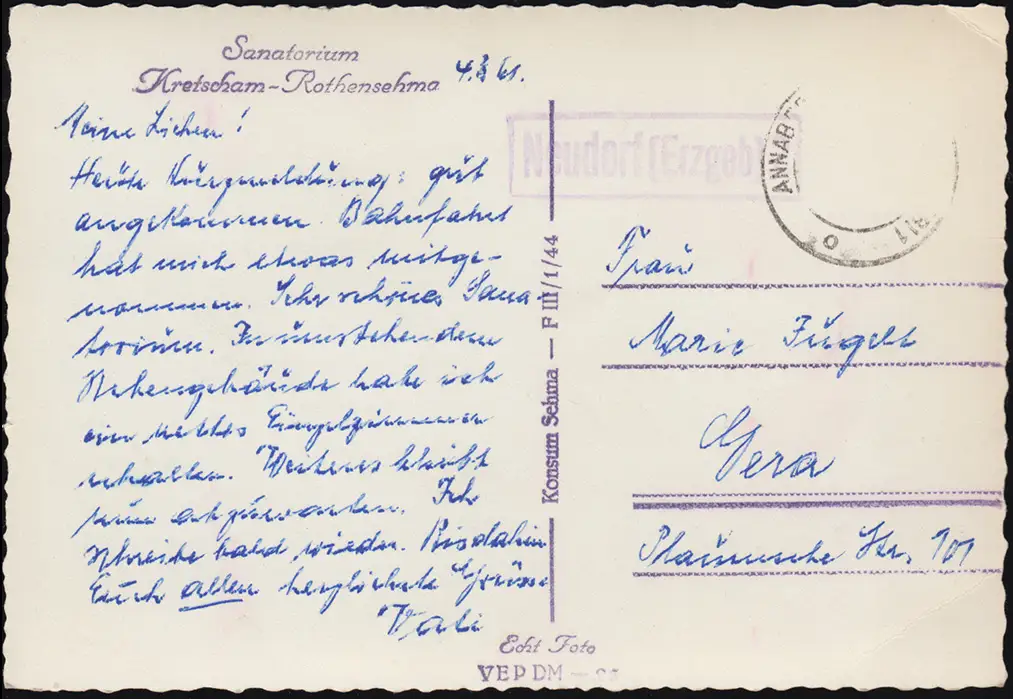 Sanatorium
Kretscham-Rothensehma
4.3.61.
Meine Lieben!
Heute Kurzmeldung: gut
angekommen. Bahnfahrt
hat mich etwas mitge-
nommen. Sehr schönes Sana-
torium. In umstehendem
Nebengebäude habe ich
ein nettes Einzelzimmer
erhalten. Weiteres bleibt
nun abzuwarten. Ich
schreibe bald wieder. Bis dahin
Euch allen herzlichste Grüsse
Vati
Konsum Sehma — F III/1/44
Neudorf (Erzgeb)
ANNAB
Frau
Marie Jügelt
Gera
Plauensche Str. 101
Echt Foto
VEP DM —